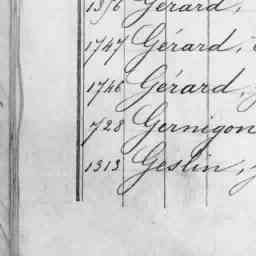 1376 Gérard,
1747 Gérard,
1746 Gérard,
728 Gernigon
1313 Geslin,